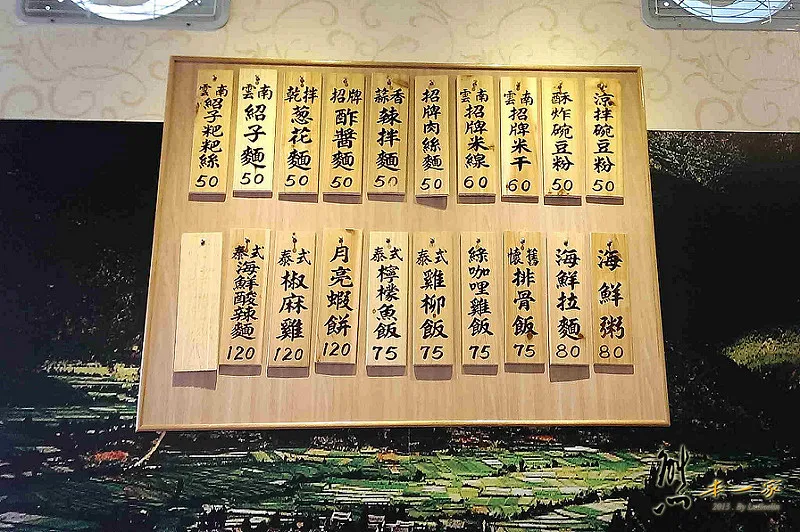 涼拌碗豆粉 50
酥炸碗豆粉 50
雲南招牌米干 60
雲南招牌米線 60
招牌肉絲麵 50
蒜香辣拌麵 50
招牌酢醬麵 50
乾拌蔥花麵 50
雲南紹子麵 50
雲南紹子粑粑絲 50
海鮮粥 80
海鮮拉麵 80
懷舊排骨飯 75
綠咖哩雞飯 75
泰式雞柳飯 75
泰式檸檬魚飯 75
月亮蝦餅 120
泰式椒麻雞 120
泰式海鮮酸辣麵 120
熊本一家
2013. By